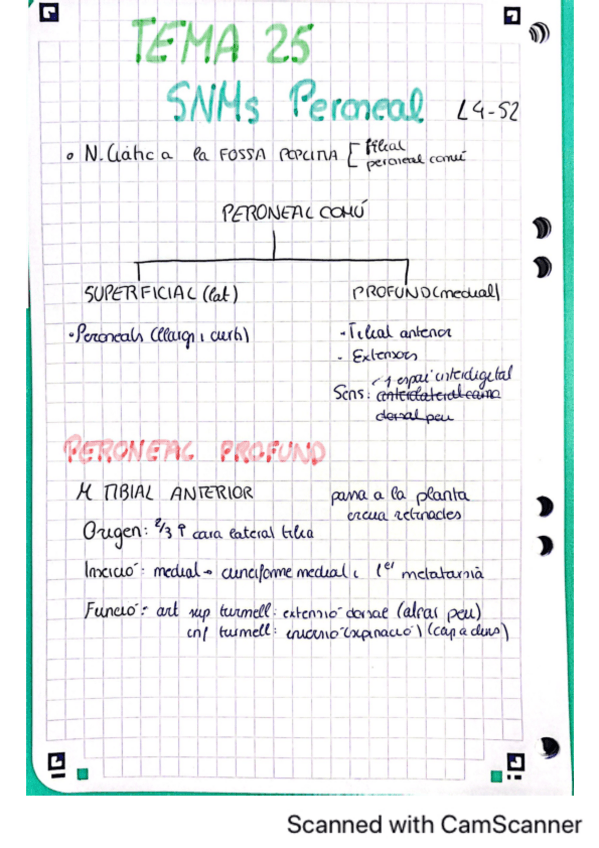 TEMA 25
SNMs Peroneal L4-S2
• N. Ciàtic a la FOSSA POPLITIA [ tibial
peroneal comú
PERONEAL COMÚ
SUPERFICIAL (lat) PROFUND (medial)
• Peroneals (llarg i curt) - Tibial anterior
- Extensors
Sens: 1 espai interdigital
anterolateral cama
dorsal peu
PERONEAL PROFUND
M TIBIAL ANTERIOR passa a la planta
creua retinacles
Origen: 2/3 ↑ cara lateral tibia
Inserció: medial → cuneiforme medial i 1er metatarsià
Funció: art sup turmell: extensió dorsal (alçar peu)
inf turmell: inversió (supinació) (cap a dins)
Scanned with CamScanner